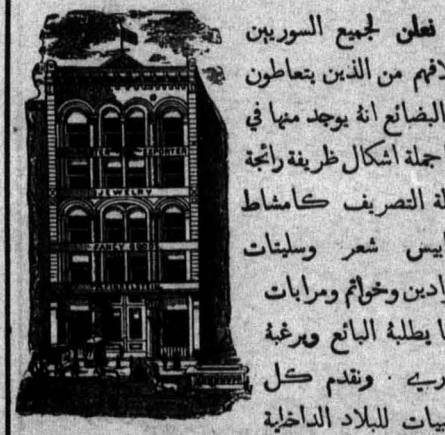 نعلن لجميع السوريين
لافهم من الذين يتعاطون
البضائع انهُ يوجد منها في
جملة اشكال ظريفة رائجة
لة التصريف كامشاط
ابيس شعر وسليتات
ادين وخواتم ومرايات
ا يطلبهُ البائع ويرغبهُ
ري . ونقدم كل
بيات للبلاد الداخلية
JEWELRY
FANCY GOODS